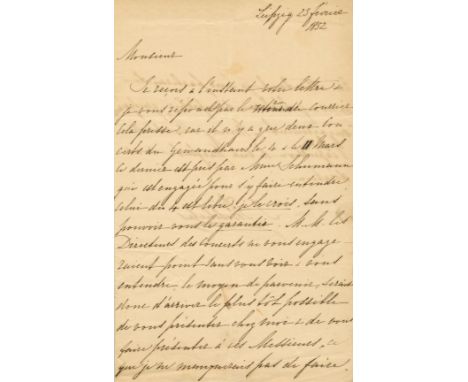 Leipzig 23 février
1852
Monsieur
Je reçois à l'instant votre lettre &
je vous réponds par le même courrier
cela presse, car il n'y a que deux Con
certs du Gewandhaus le 4 & le 11 Mars
le dernier est pris par Mme Schumann
qui est engagée pour s'y faire entendre
celui du 4 est libre, je le crois, sans
pouvoir vous le garantir. M.M. les
Directeurs des Concerts ne vous engage
raient point sans vous voir & vous
entendre, le moyen de parvenir, serait
donc d'arriver le plus tôt possible
de vous présenter chez moi & de vous
faire présenter à ces Messieurs, ce
que je ne manquerais pas de faire